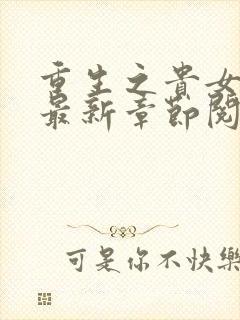 重生之貴女
最新章節閱
可是你不快樂